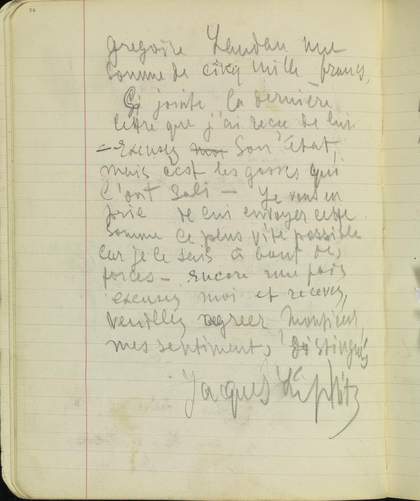 gregoire Landau une
somme de cinq mille francs,
Ci jointe la dernière
lettre que j'ai reçu de lui
– excusez moi son état,
mais c'est les gosses qui
l'ont sali – Je vous en
prie de lui envoyer cette
somme le plus vite possible
car je le sens à bout de
forces – encore une fois
excusez moi et recevez,
veuillez agréer Monsieur,
mes sentiments distingués
Jacques Lipchitz